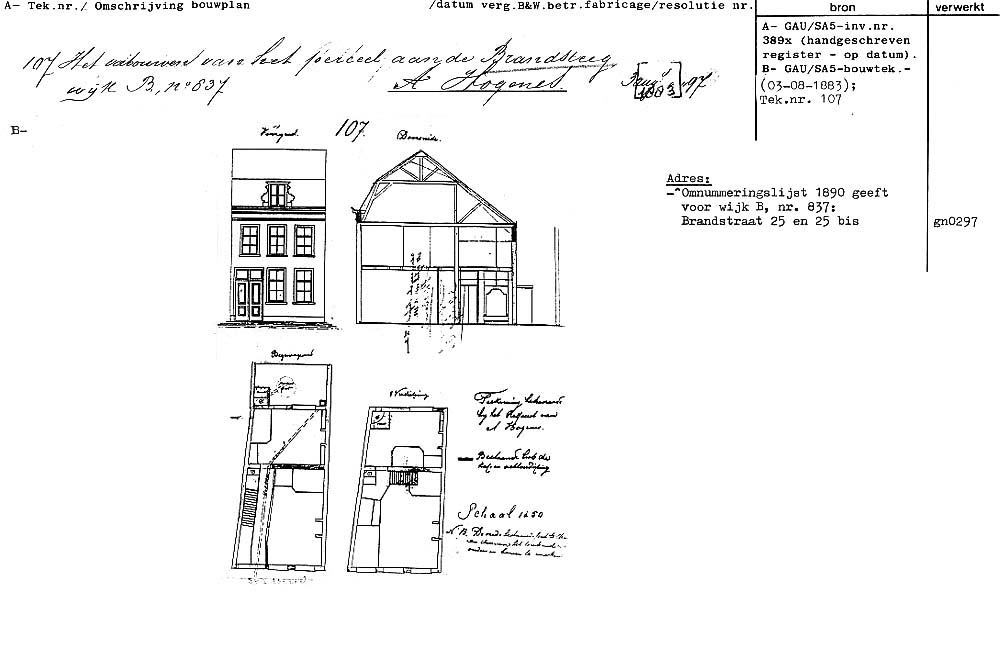 A- Tek.nr./ Omschrijving bouwplan /datum verg.B&W.betr.fabricage/resolutie nr. bron verwerkt
107 Het verbouwen van het perceel aan de Brandsteeg
wijk B, no 837 A Hogenes. 3 aug 1883 107
A- GAU/SA5-inv.nr.
389x (handgeschreven
register - op datum).
B- GAU/SA5-bouwtek.-
(03-08-1883);
Tek.nr. 107
B-
Voorgevel. 107. Doorsnede.
Adres:
-^Omnummeringslijst 1890 geeft
voor wijk B, nr. 837:
Brandstraat 25 en 25 bis gn0297
Begane grond
1 Verdieping
Teekening behoorende
bij het request van
A Hogenes.
Schaal 1 à 50
N.B.